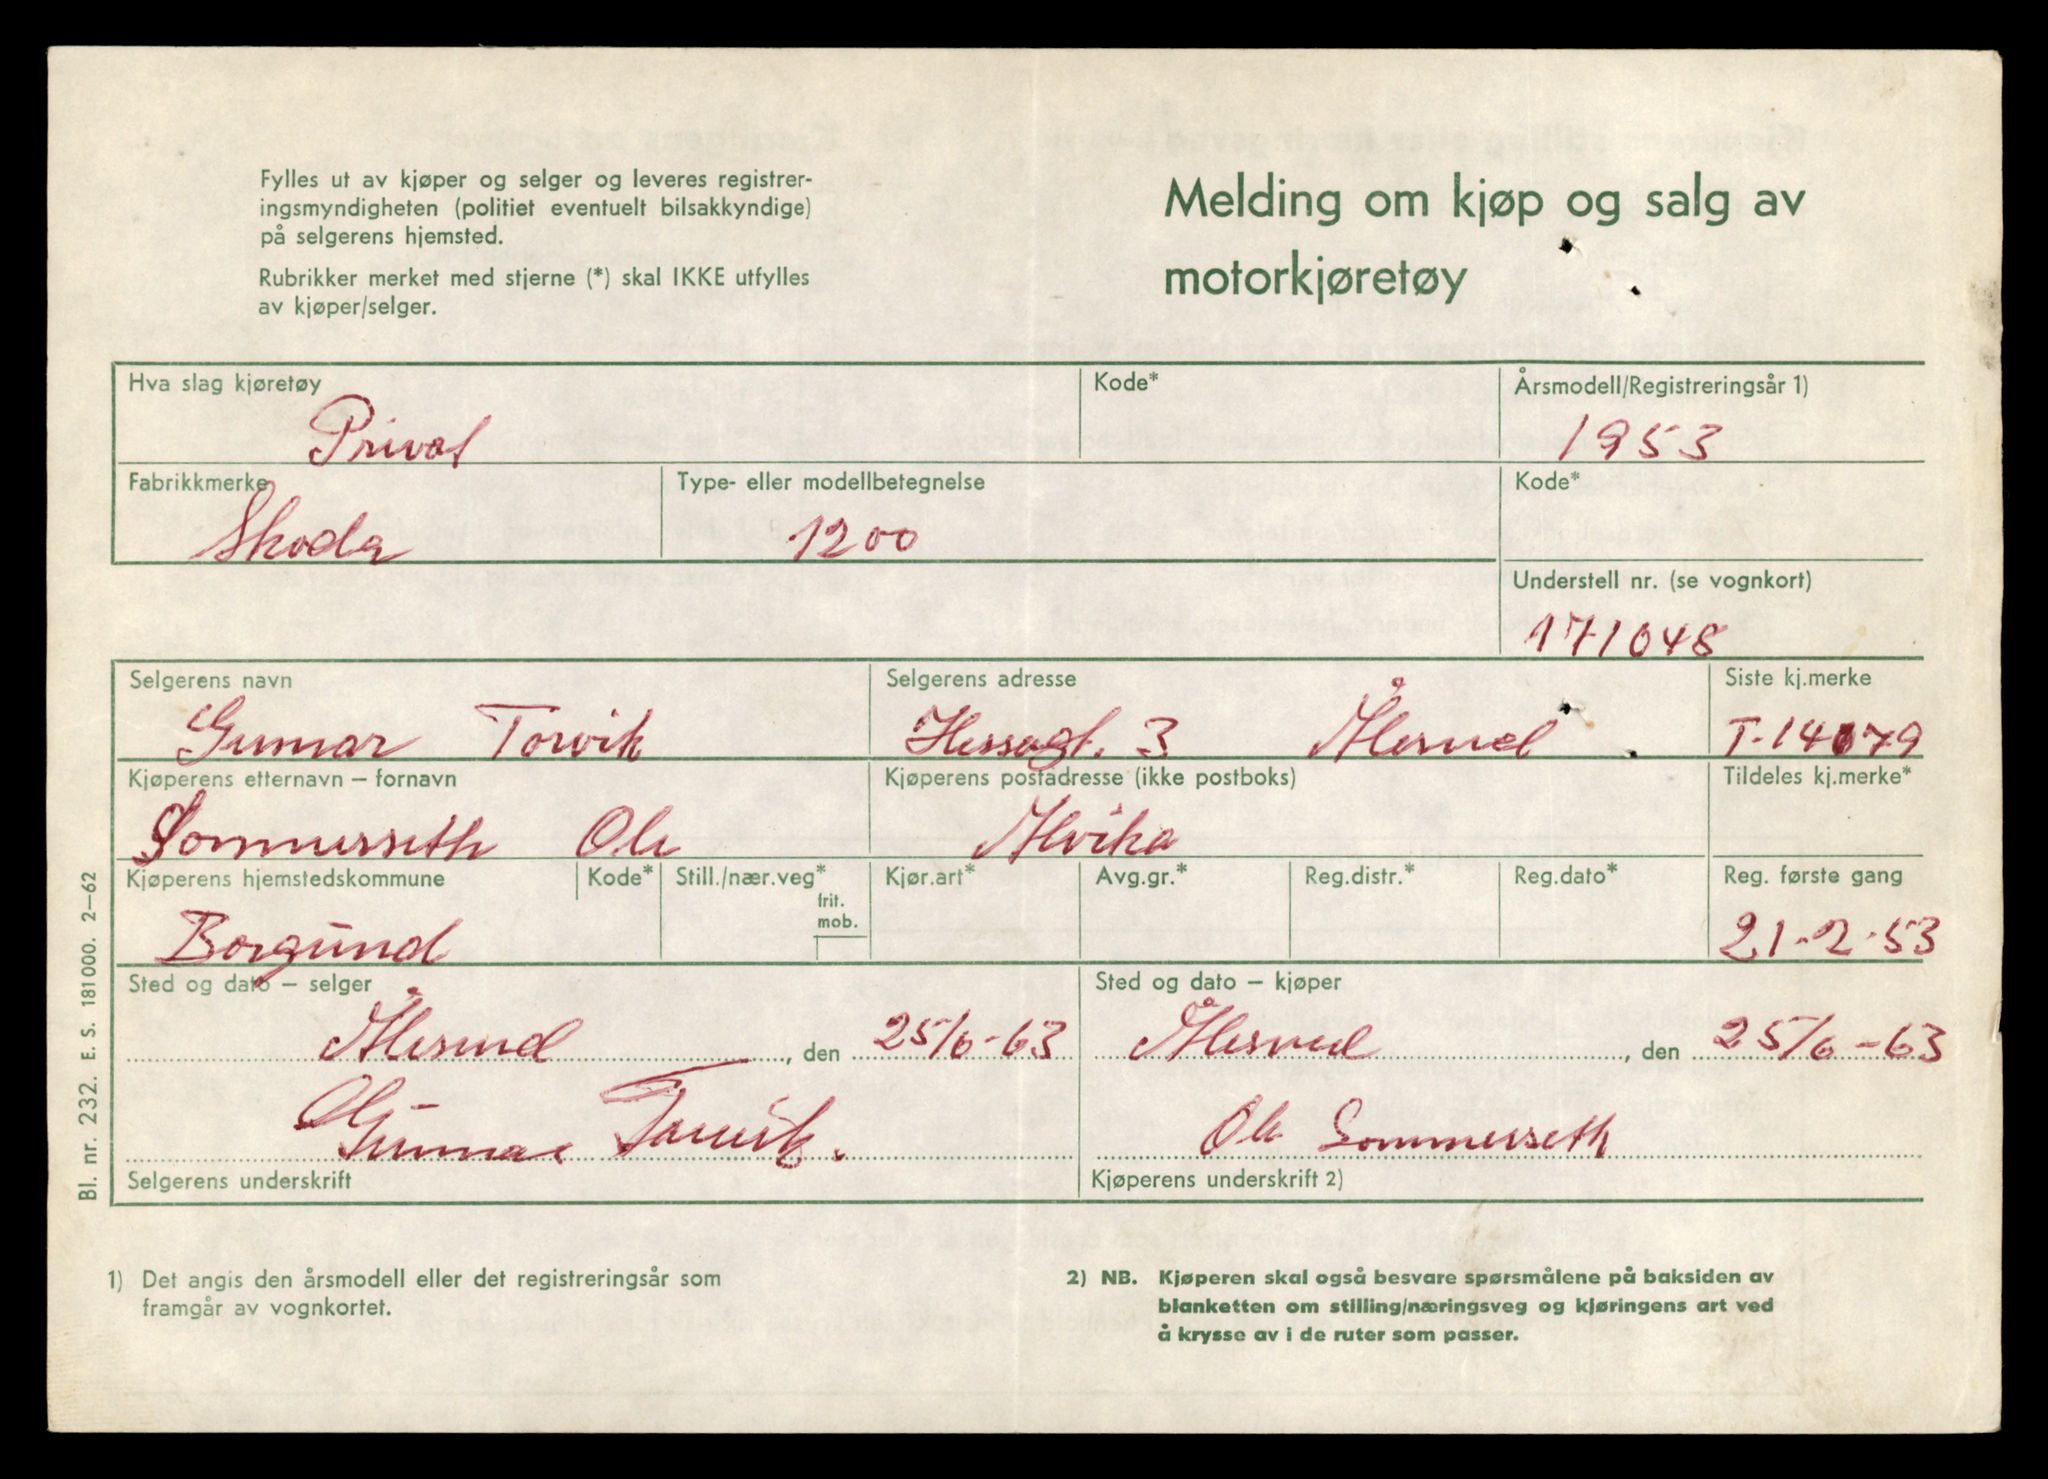 Fylles ut av kjøper og selger og leveres registrer-
ingsmyndigheten (politiet eventuelt bilsakkyndige)
på selgerens hjemsted.
Rubrikker merket med stjerne (*) skal IKKE utfylles
av kjøper/selger.
Melding om kjøp og salg av
motorkjøretøy
Hva slag kjøretøy
Kode*
Årsmodell/Registreringsår 1)
Privat
1953
Fabrikkmerke
Type- eller modellbetegnelse
Kode*
Skoda
1200
Understell nr. (se vognkort)
171048
Selgerens navn
Selgerens adresse
Siste kj.merke
Gunnar Torvik
Hessagt. 3 Ålesund
T-14079
Kjøperens etternavn – fornavn
Kjøperens postadresse (ikke postboks)
Tildeles kj.merke*
Sommerseth Ole
Alvika
Kjøperens hjemstedskommune
Kode*
Still./nær.veg*
frit.
mob.
Kjør.art*
Avg.gr.*
Reg.distr.*
Reg.dato*
Reg. første gang
Borgund
21-2-53
Sted og dato – selger
Sted og dato – kjøper
Ålesund, den 25/6-63
Ålesund, den 25/6-63
Ole
Gunnar Torvik.
Ole Sommerseth
Selgerens underskrift
Kjøperens underskrift 2)
1) Det angis den årsmodell eller det registreringsår som
framgår av vognkortet.
2) NB. Kjøperen skal også besvare spørsmålene på baksiden av
blanketten om stilling/næringsveg og kjøringens art ved
å krysse av i de ruter som passer.
Bl. nr. 232. E. S. 181000. 2–62